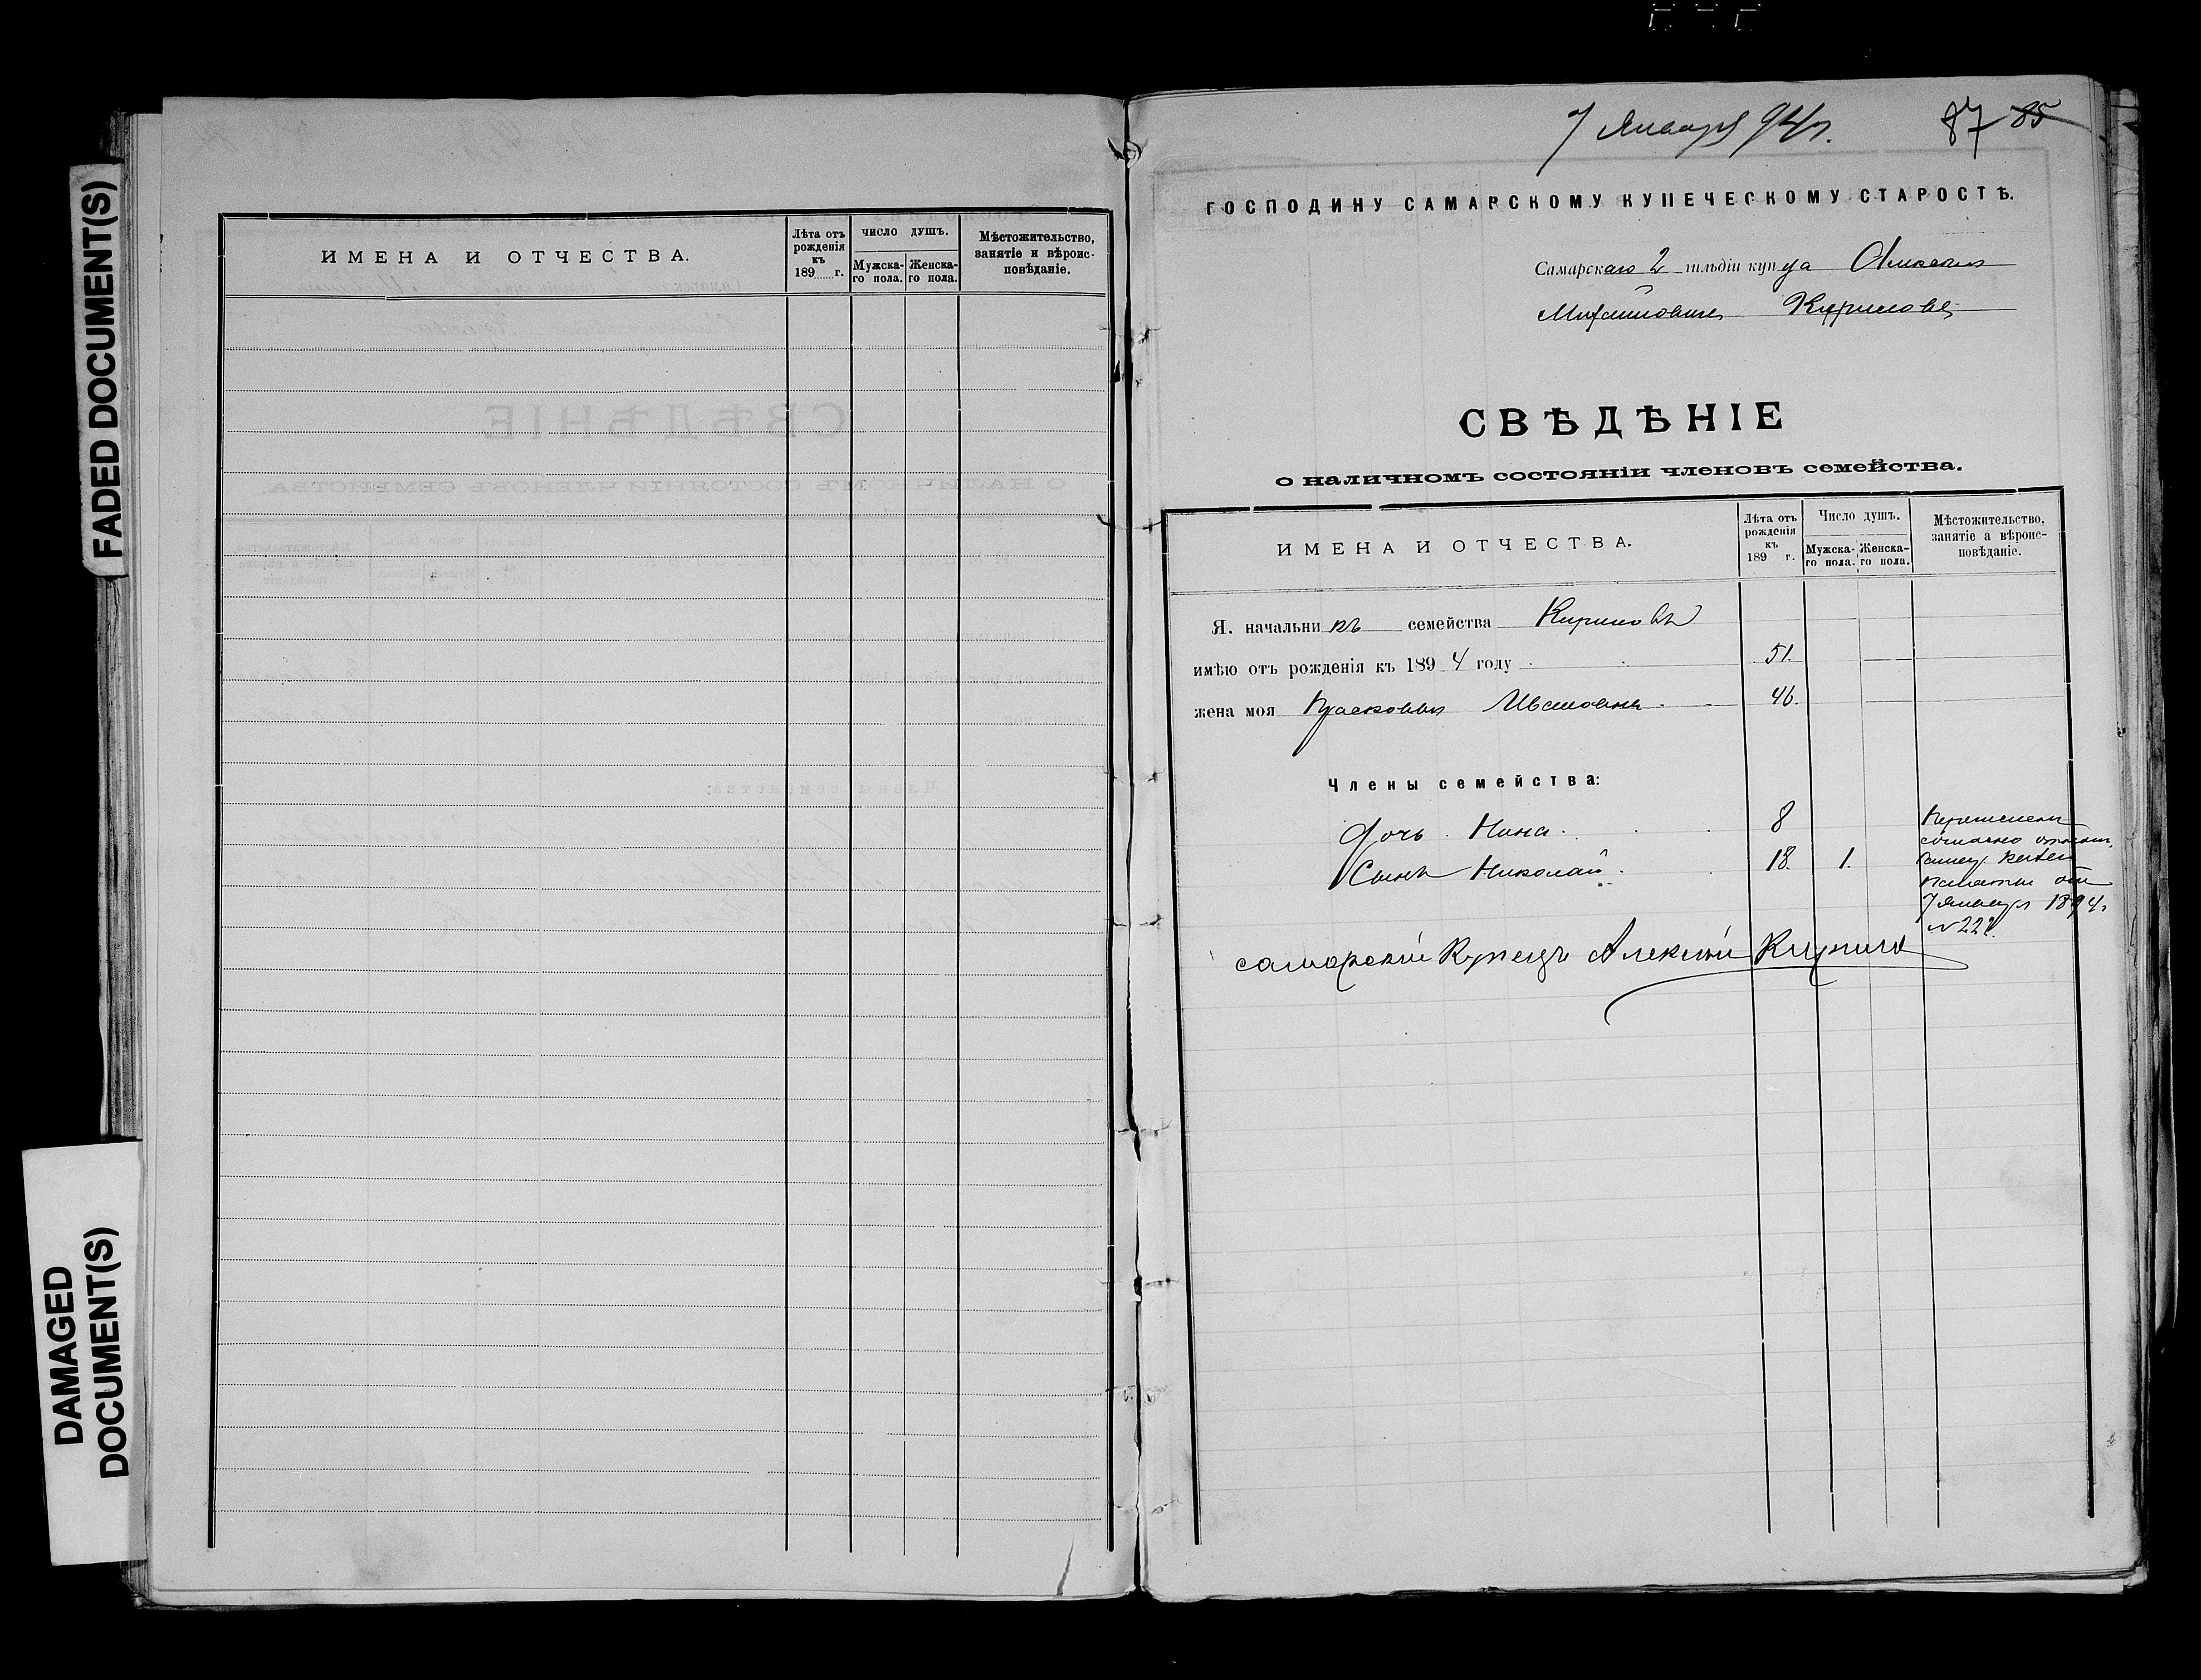 FADED DOCUMENT(S)
DAMAGED
DOCUMENT(S)
ИМЕНА И ОТЧЕСТВА.
Лѣта отъ
рожденія
къ
189 г.
ЧИСЛО ДУШЪ.
Мужска-
го пола.
Женска-
го пола.
Мѣстожительство,
занятіе и вѣроис-
повѣданіе.
7 Января 94 г.
87 85
ГОСПОДИНУ САМАРСКОМУ КУПЕЧЕСКОМУ СТАРОСТѢ.
Самарскаго 2 гильдіи купца Алексѣя
Михайловича Кирилова
СВѢДѢНІЕ
о наличномъ состояніи членовъ семейства.
ИМЕНА И ОТЧЕСТВА.
Лѣта отъ
рожденія
къ
189 г.
Число душъ.
Мужска-
го пола.
Женска-
го пола.
Мѣстожительство,
занятіе а вѣроис-
повѣданіе.
Я. начальникъ семейства Кириловъ
имѣю отъ рожденія къ 1894 году 51.
жена моя Прасковья Ивановна 46.
Члены семейства:
Дочь Нина 8
Сынъ Николай 18. 1.
согласно
Казен
палаты от
7 Января 1894 г
№ 222.
самарскій Купецъ Алексѣй Кирило